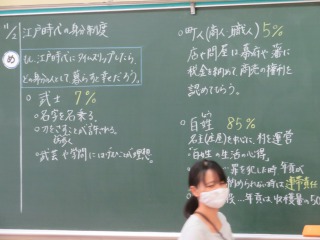 11/2 江戸時代の身分制度
め
もし、江戸時代にタイムスリップしたら、
どの身分の人として暮らすだろう。
○ 武士 7%
○名字を名乗る。
○刀をさすことが許される。
○武芸や学問にはげむことが理想。
○ 町人(商人、職人) 5%
店や問屋は幕府や藩に
税金を納めて商売の権利を
認めてもらう。
○ 百姓 85%
名主(庄屋)を中心に、村を運営
"百姓の生活の心得"
罪を犯した時 年貢が
納められない時は連帯責任
年貢は収穫量の50